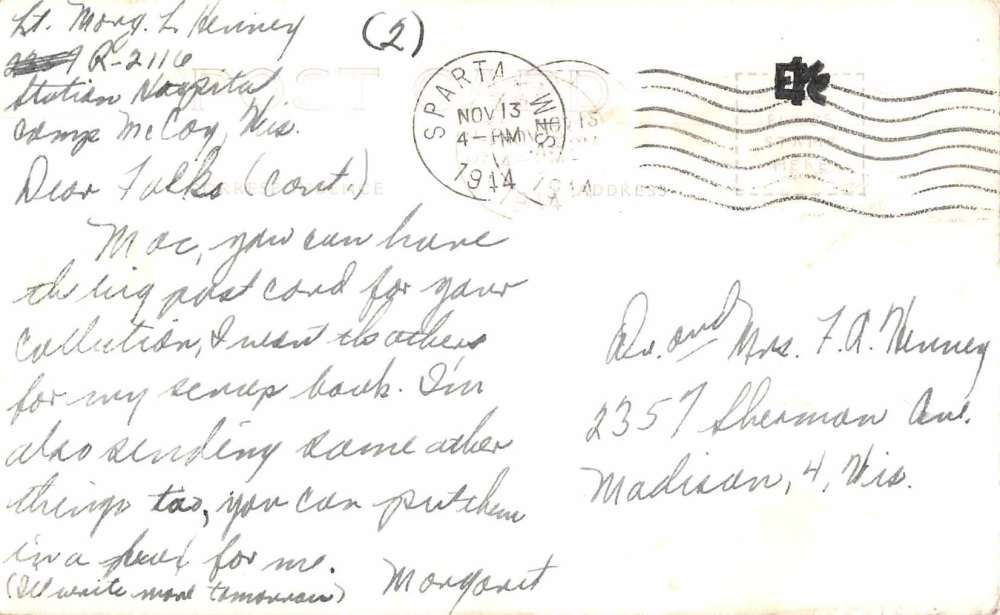 Lt. Marg. L. Henney
R-2116
Station Hospital
Camp McCoy, Wis.
(2)
POST CARD
SPARTA, WIS.
NOV 13
4-PM
1944
CORRESPONDENCE
ADDRESS
PLACE
STAMP
HERE
Dear Folks (cont.)
Mac, you can have
the big post card for your
collection, I want the others
for my scrap book. I'm
also sending some other
things too, you can put them
in a box for me.
(I'll write more tomorrow)
Margaret
Dr. and Mrs. F. A. Henney
2357 Sherman Ave.
Madison, 4, Wis.